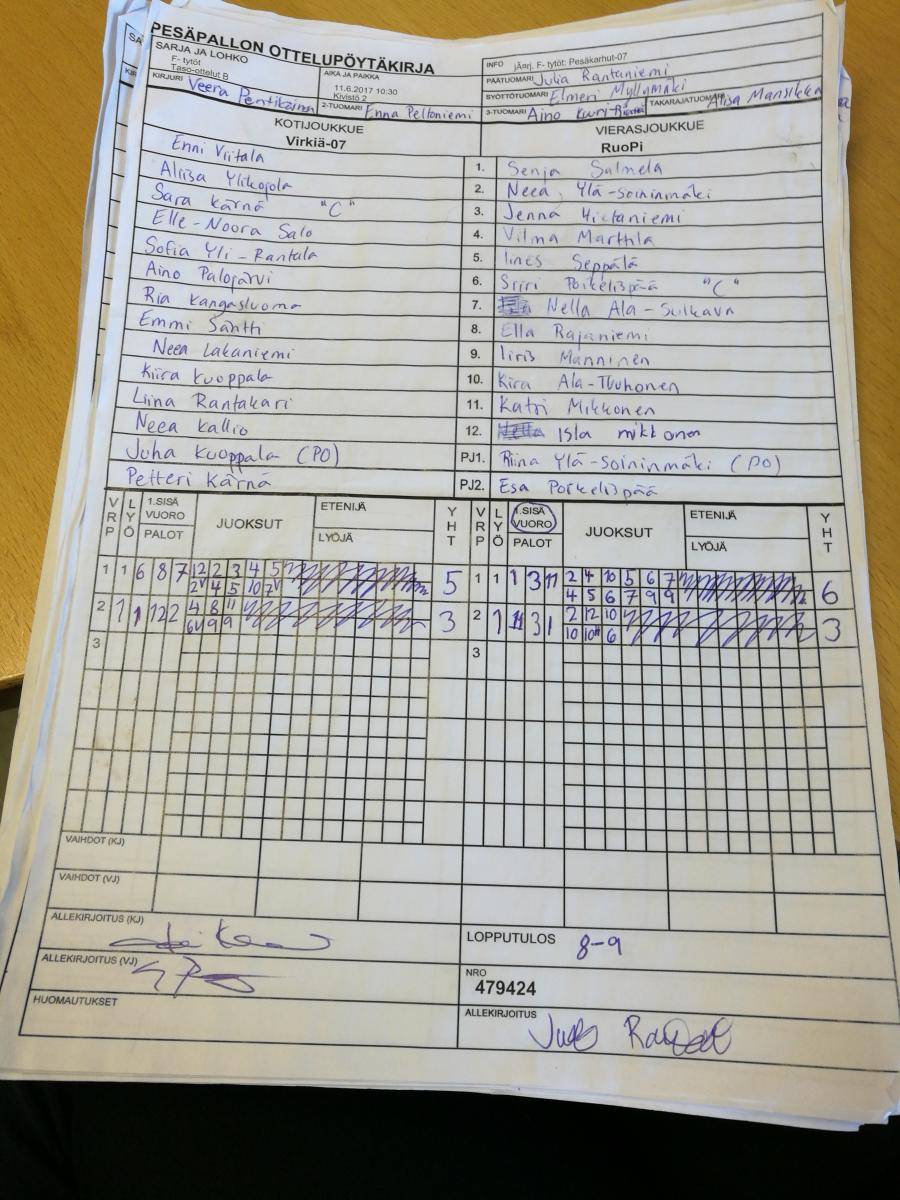 PESÄPALLON OTTELUPÖYTÄKIRJA
SARJA JA LOHKO
F- tytöt
Taso-ottelut B
AIKA JA PAIKKA
11.6.2017 10:30
Kivistö 2
INFO jÃ¤rj. F- tytöt: Pesäkarhut-07
PÄÄTUOMARI Julia Rantaniemi
SYÖTTÖTUOMARI Elmeri Myllymäki
KIRJURI Veera Pentikäinen
2-TUOMARI Enna Peltoniemi
3-TUOMARI Aino
TAKARAJATUOMARI Alisa Mansikka
KOTIJOUKKUE
Virkiä-07
VIERASJOUKKUE
RuoPi
Enni Viitala 1. Senja Salmela
Aliisa Ylikojola 2. Neea Ylä-Soininmäki
Sara Kärnä "C" 3. Jenna Hietaniemi
Elle-Noora Salo 4. Vilma Marttila
Sofia Yli-Rantala 5. Iines Seppälä
Aino Palojärvi 6. Siiri Poikelispää "C"
Ria Kangasluoma 7. Nella Ala-Sulkava
Emmi Säntti 8. Ella Rajaniemi
Neea Lakaniemi 9. Iiris Manninen
Kiira Kuoppala 10. Kira Ala-Tuuhonen
Liina Rantakari 11. Katri Mikkonen
Neea Kallio 12. Isla Mikkonen
Juha Kuoppala (PO) PJ1. Riina Ylä-Soininmäki (PO)
Petteri Kärnä PJ2. Esa Poikelispää
VRP LYÖ 1.SISÄ VUORO PALOT JUOKSUT ETENIJÄ LYÖJÄ YHT VRP LYÖ 1.SISÄ VUORO PALOT JUOKSUT ETENIJÄ LYÖJÄ YHT
1 1 6 8 7 12 2 3 4 5 5 1 1 1 3 11 2 4 10 5 6 7 6
2V 4 5 10 7V 4 5 6 7 9 9
2 1 1 12 2 4 8 11 3 2 1 11 3 1 2 12 10 3
6V 9 9 10 10 6
3 3
VAIHDOT (KJ)
VAIHDOT (VJ)
ALLEKIRJOITUS (KJ)
LOPPUTULOS 8-9
ALLEKIRJOITUS (VJ)
NRO
479424
HUOMAUTUKSET
ALLEKIRJOITUS